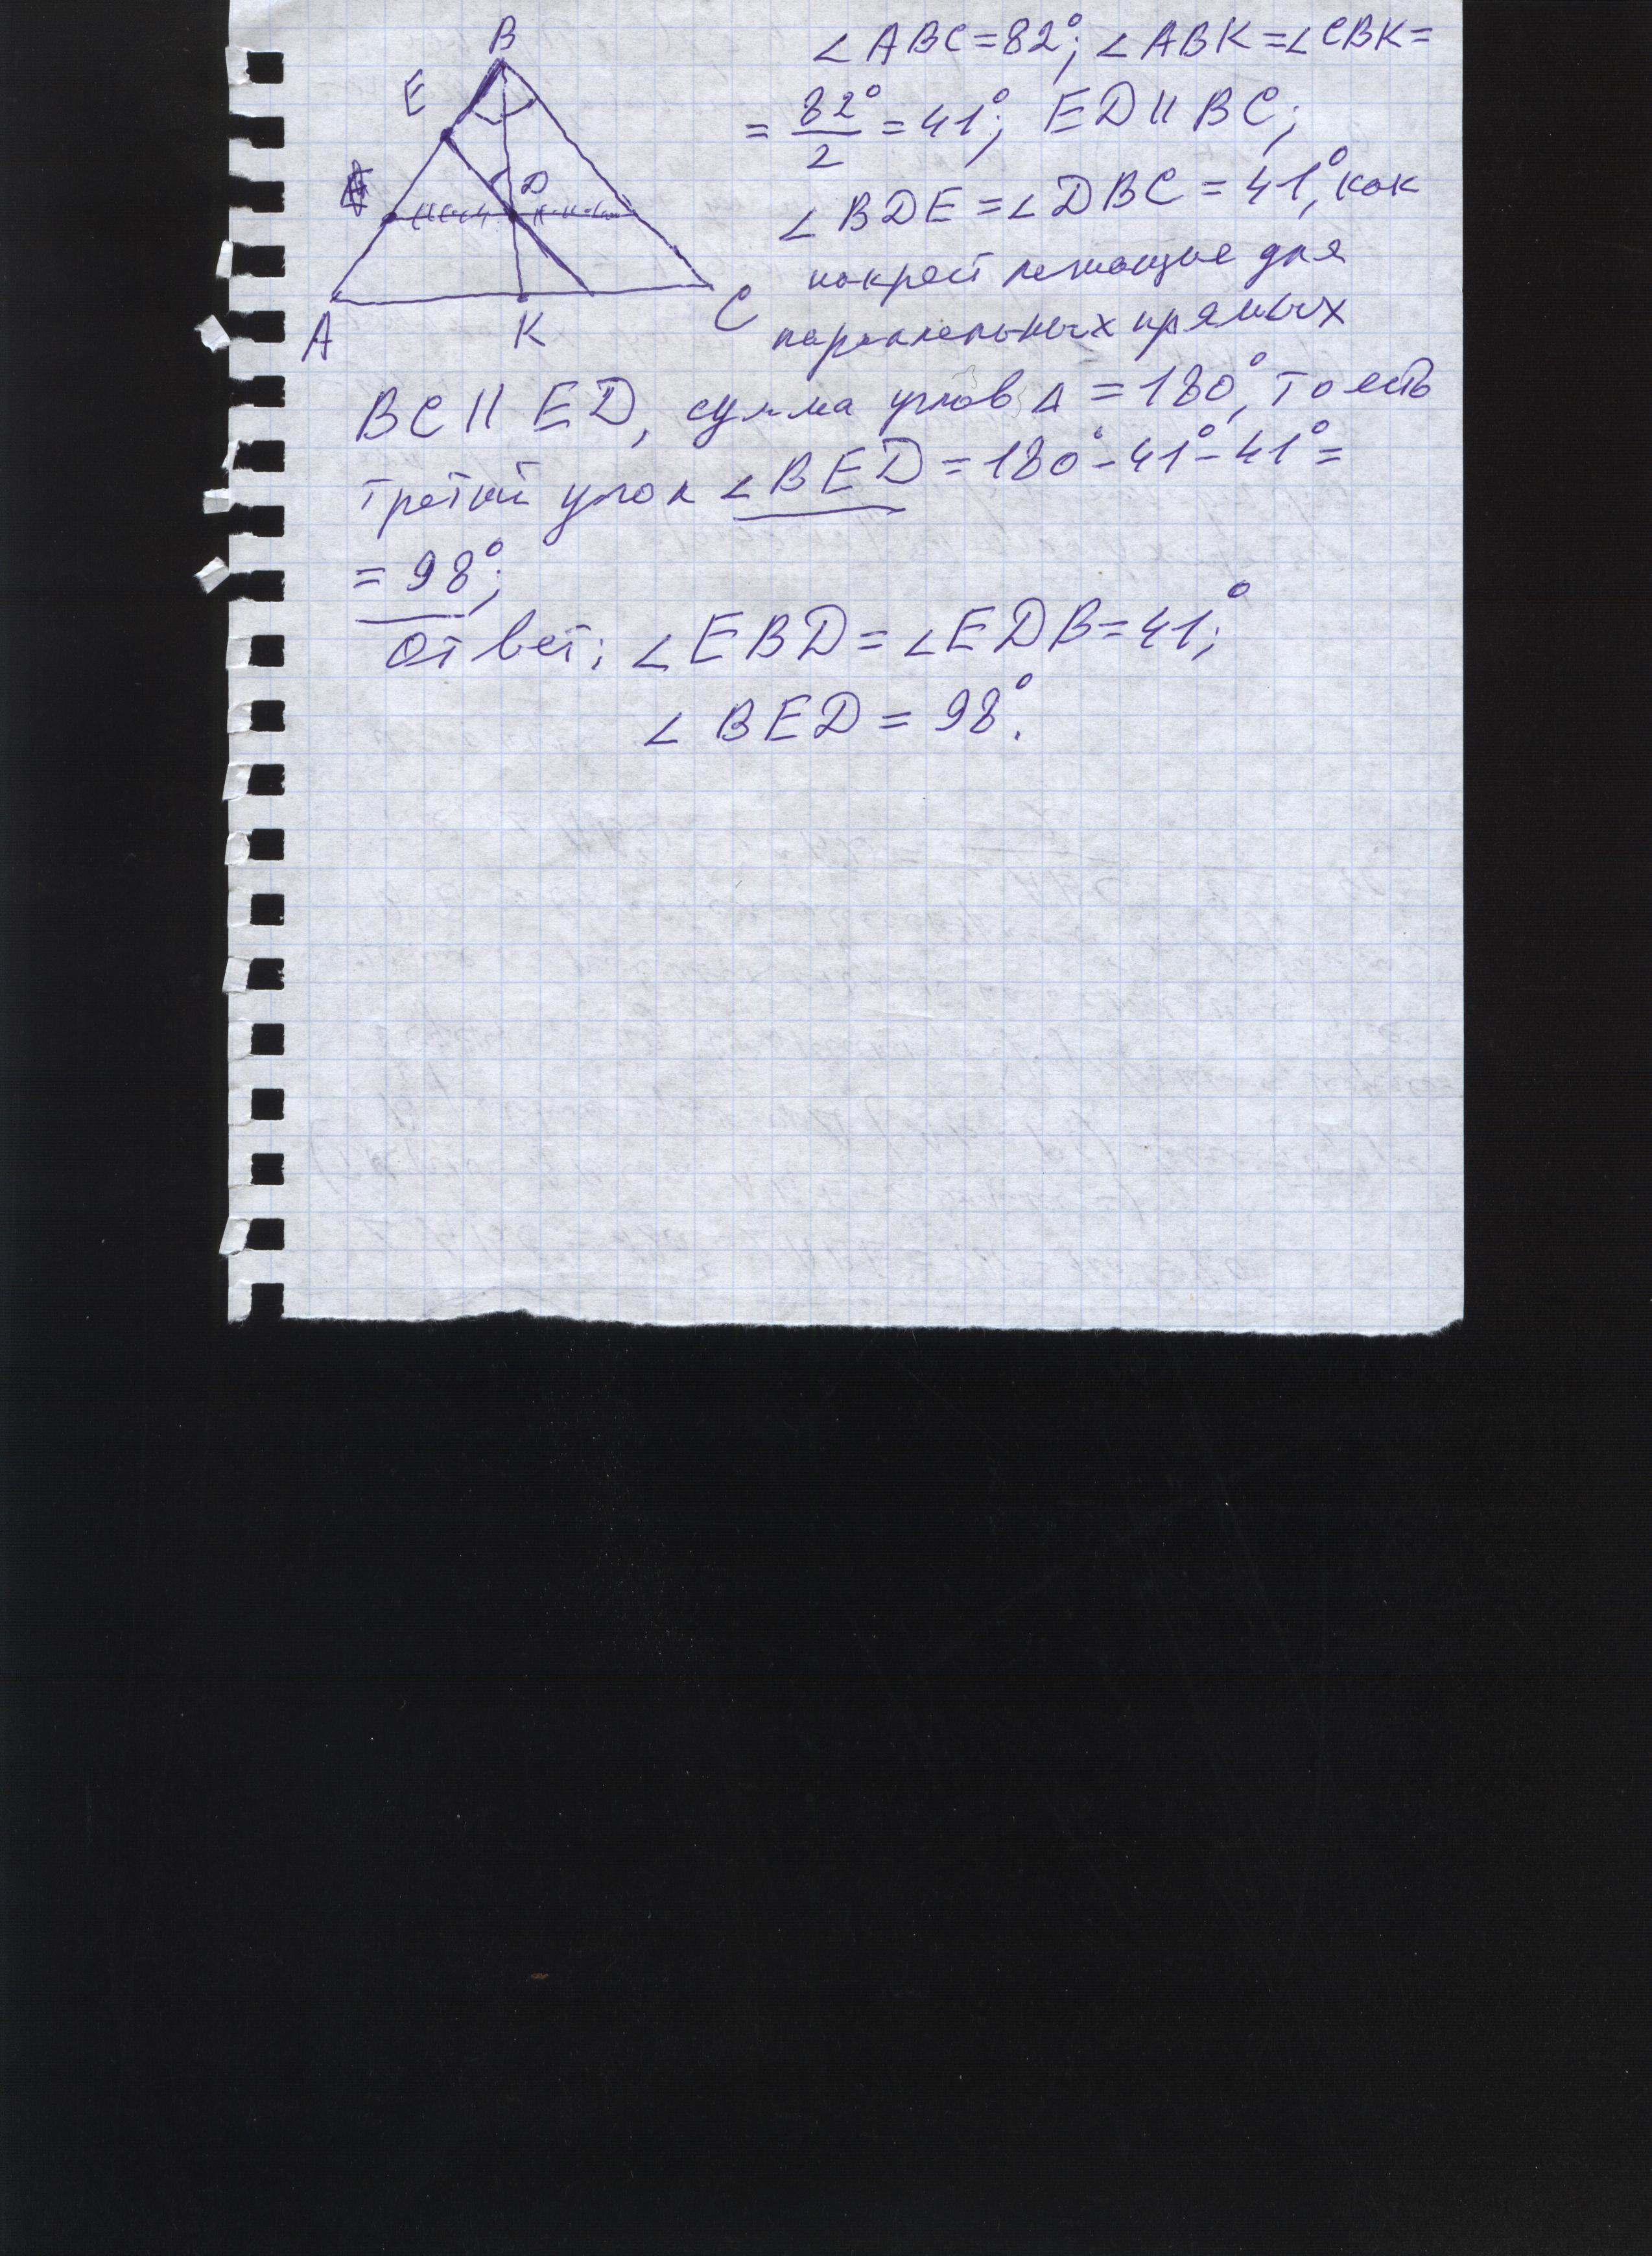 B
E
D
A
K
C
∠ABC=82°; ∠ABK=∠CBK=
= 82°/2 = 41°; ED || BC;
∠BDE=∠DBC=41°, как
накрест лежащие для
параллельных прямых
BC || ED, сумма углов Δ =180°, то есть
третий угол ∠BED=180°-41°-41°=
=98°;
Ответ: ∠EBD=∠EDB=41°;
∠BED=98°.